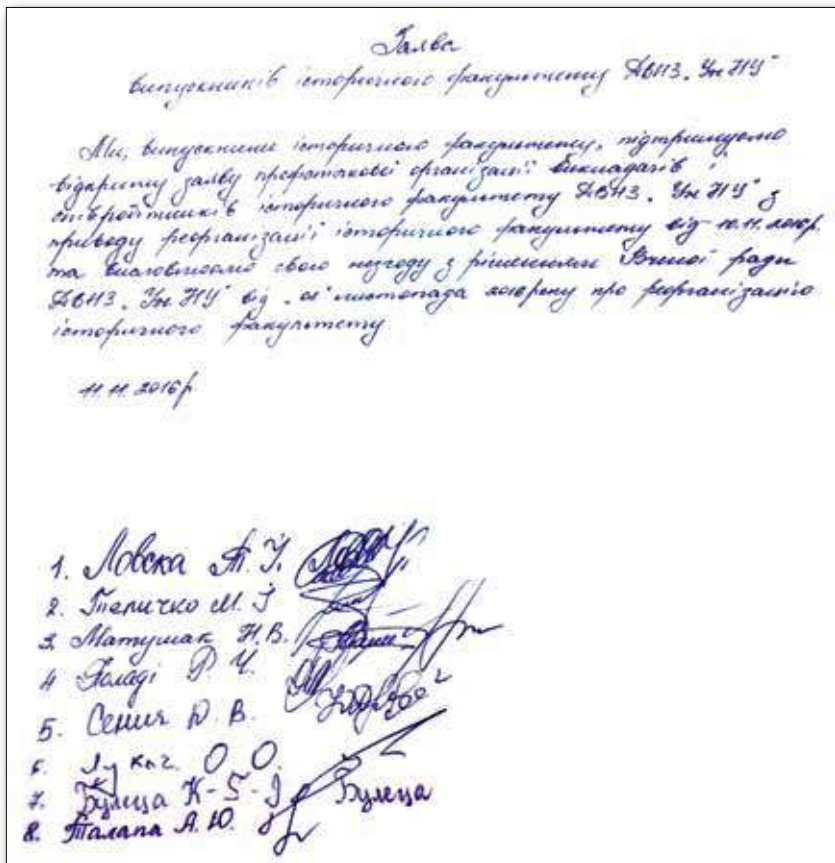 Заява
випускників історичного факультету ДВНЗ „УжНУ"
Ми, випускники історичного факультету, підтримуємо
відкриту заяву профспілкової організації викладачів і
співробітників історичного факультету ДВНЗ „УжНУ" з
приводу реорганізації історичного факультету від 10.11.2016р.
та висловлюємо свою незгоду з рішенням Вченої ради
ДВНЗ „УжНУ" від листопада 2016 року про реорганізацію
історичного факультету
11.11.2016р.
1. Ловска М.
2. М. І
3. Матушак Н.В.
4
5. Сенич В.
6. Лукач О О.
7. Булеца К-5-І Булеца
8. Талапа А.Ю.